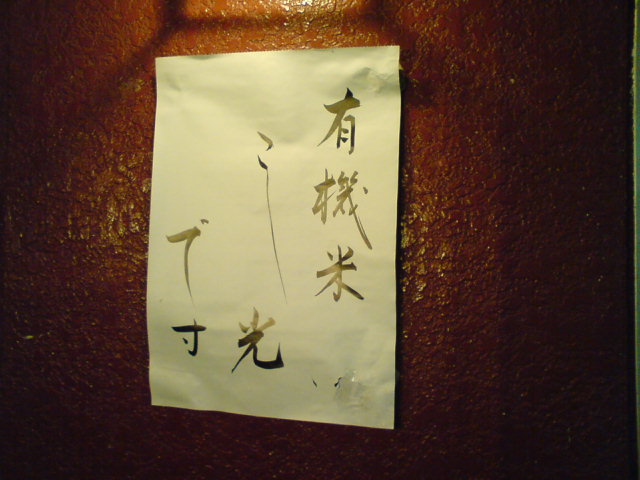 有機米
こし光
で寸